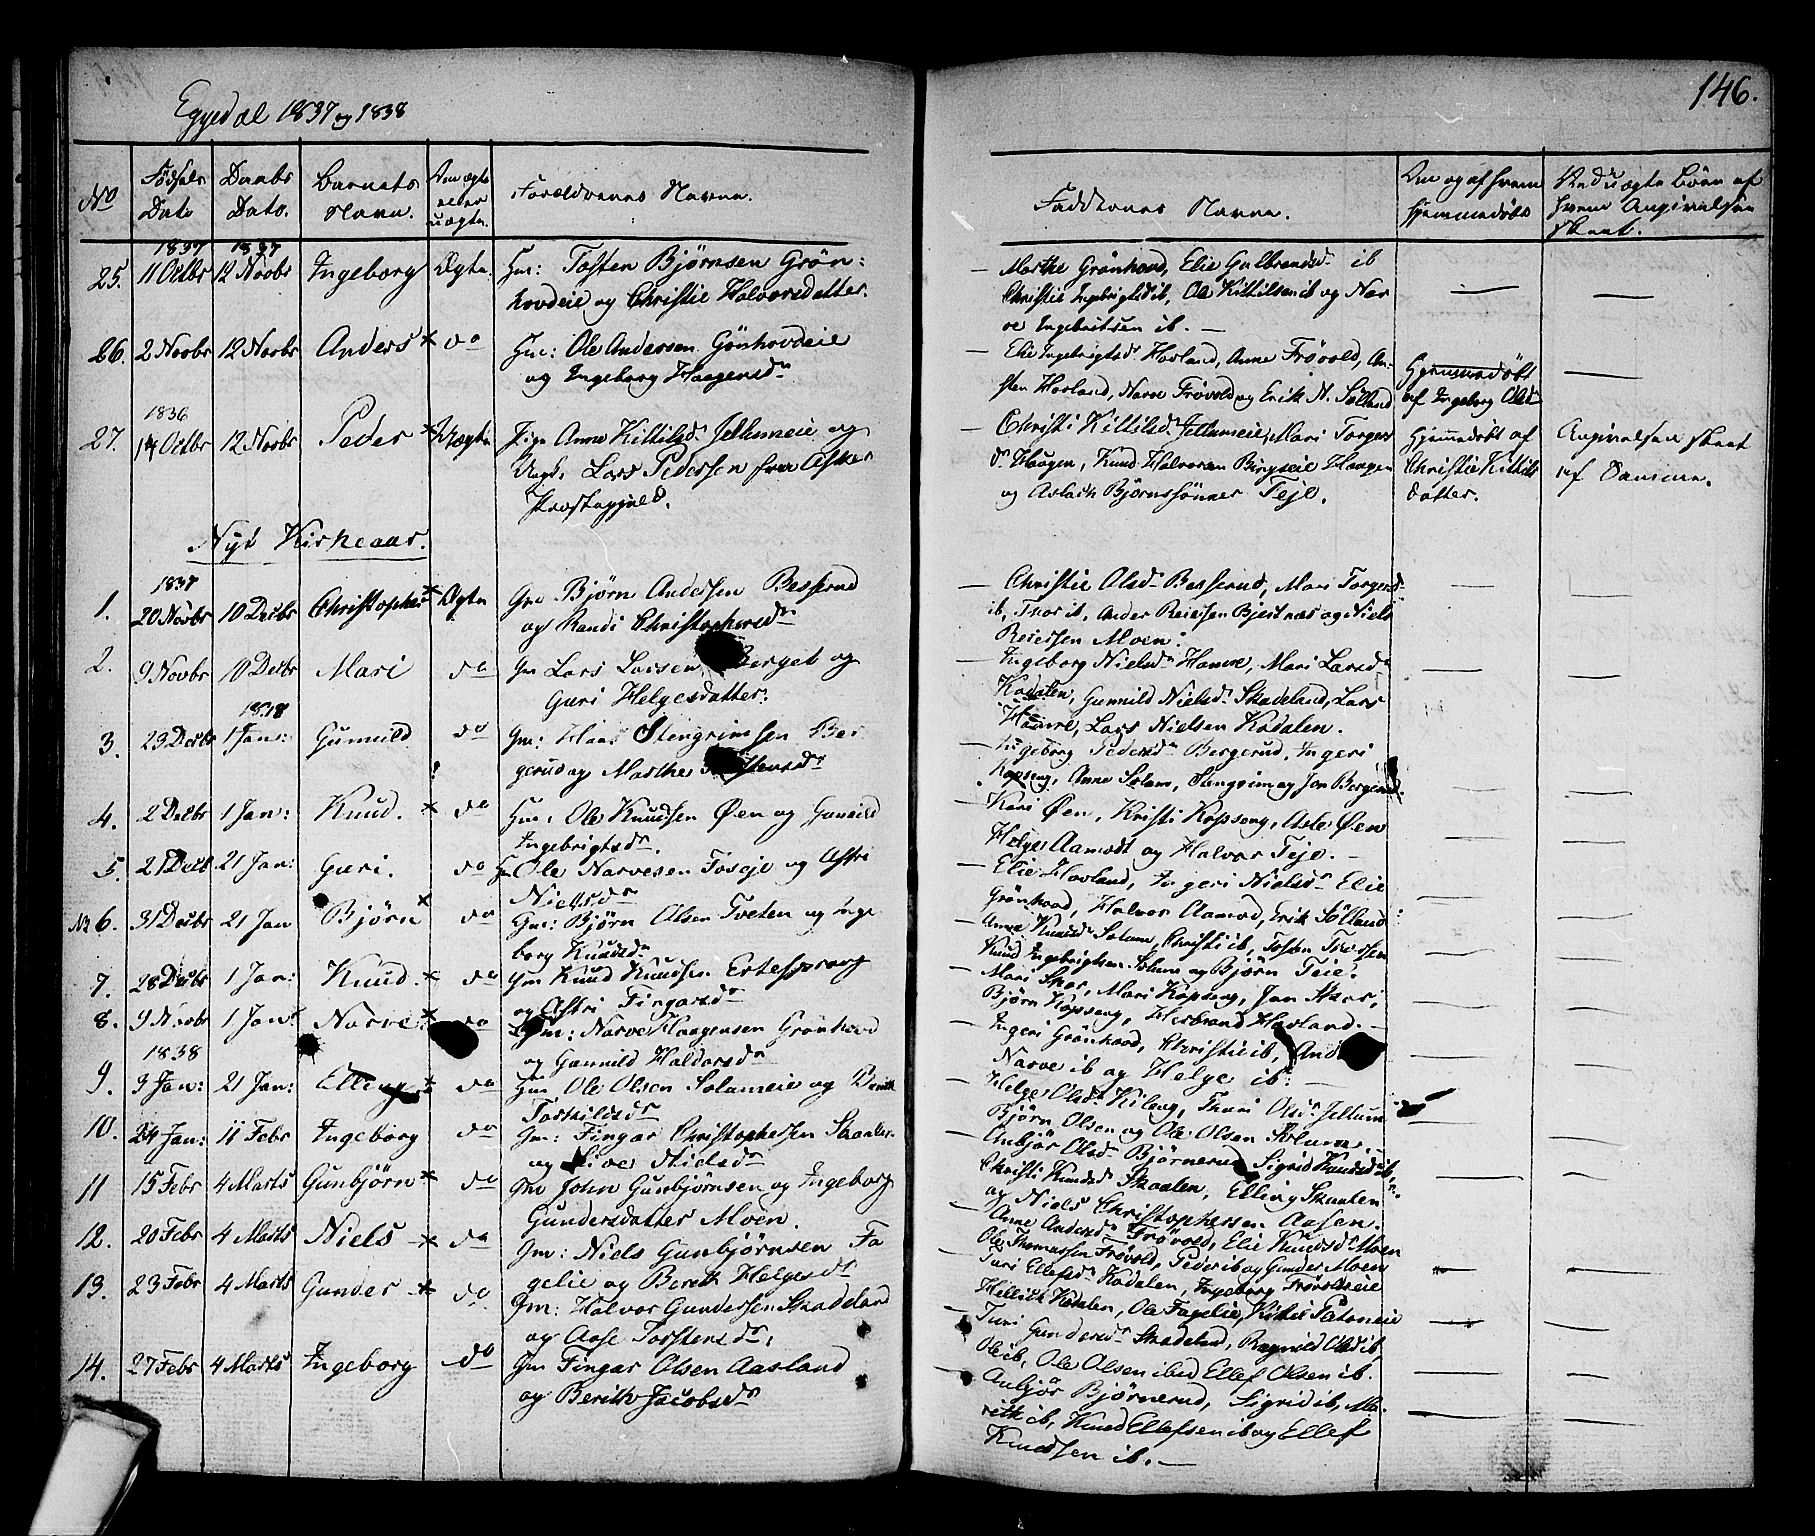 146.
Eggedal 1837 og 1838
No
Fødsels Dato
Daabs Dato.
Barnets Navn.
Om ægte eller uægte.
Forældrenes Navne.
Faddernes Navne.
Om og af hvem hjemmedøbt
Ved uægte Børn af hvem Angivelsen skeet.
1837 1837
25. 11 Octbr 12 Novbr Ingeborg Ægte. Gm: Tosten Bjørnsen Grøn-
hovdeie og Christie Halvorsdatter.
— Marthe Grønhovd, Elie Gulbrandsd. ib
Christie Ingebrigtsd ib, Ole Kittilsen ib og Nar
ve Ingebritsen ib. —
26. 2 Novbr 12 Novbr Anders × do Gm: Ole Andersen Grønhovdeie
og Ingeborg Haagensdr
— Elie Ingebrigtsdr Hovland, Anne Frøvold, An-
sten Hovland, Narve Frøvold og Erik N. Sølland
Hjemmedøbt
af Ingeborg Olsd
1836
27. 14 Octbr 12 Novbr Peder × Uægte Pige Anne Kittilsdr Jellumeie og
Ungk. Lars Pedersen fra Asker
Præstegjeld.
Christi Kittilsdr Jellumeie, Mari Torgers
dr Haagen, Knud Halvorsen Haagen
og Aslach Bjørnssønner Teje.
Hjemmedøbt af
Christie Kittils
datter.
Angivelsen skeet
af Samme.
Nyt Kirkeaar.
1837
1. 20 Novbr 10 Decbr Christopher × Ægte Gm Bjørn Andersen Besserud
og Randi Christophersdr
— Christie Olsdr Besserud, Mari Torgersd-
ib, Thor ib, Ander Reiersen Bjertnæs og Niels
Reiersen Moen.
2. 9 Novbr 10 Decbr Mari do Gm Lars Larsen Berget og
Guri Helgesdatter.
— Ingeborg Nielsdr Hamre, Mari Larsdr
Kodalen, Gunnild Nielsdr Skadeland, Lars
Hamre, Lars Nielsen Kodalen.
1838
3. 23 Decbr 1 Jan: Gunnild do Gm: Hans Stengrimsen Ber
gerud og Marthe
— Ingeborg Pedersdr Bergerud, Ingeri
Kopseng, Anne Solem, Stengrim og Jon Bergerud.
4. 2 Decbr 1 Jan: Knud. × do Gm: Ole Knudsen Øen og Gunild
Ingebrigtsdr.
— Kari Øen, Kristi Kopseng, Asle Øen
Helge Aamodt og Halvor Teje. —
5. 21 Decbr 21 Jan: Guri. do Gm Ole Narvesen Foseje og Astri
Nielsdr
— Elie Hovland, Ingeri Nielsdr Elie
Grønhovd, Halvor Aamod, Erik Sølland
6. 31 Decbr 21 Jan Bjørn × do Gm: Bjørn Olsen Tveten og Inge
borg Knudsdr
— Anne Knudsdr Solem, Christi ib, Tosten Thorsen
Knud Ingebrigtsen Solem og Bjørn Teie.
7. 28 Decbr 1 Jan: Knud × do Gm Knud Knudsen Ertesprang
og Astri Fingarsdr
— Mari Skar, Mari Kopseng, Jan Skar,
Bjørn Kopseng, Herbrand Hovland. —
8. 9 Novbr 1 Jan: Narve × do Gm: Narve Haagensen Grønhovd
og Gunnild Haldorsdr
— Ingeri Grønhovd, Christie ib,
Narve ib og Helge ib. —
1838
9. 3 Jan: 21 Jan: Elling × do Gm Ole Olsen Solumeie og Berith
Torkildsdr
— Helge Olsdr Kileng, Thuri Olsdr Jellum
Bjørn Olsen og Ole Olsen Solum. —
10. 24 Jan: 11 Febr Ingeborg do Gm: Fingar Christophersen Skaalen
og Live Nielsdr
— Anbjør Olsdr Bjørnerud, Sigrid Knudsdr ib,
Christi Knudsd Skaalen, Elling Skaalen
og Niels Christophersen Aasen.
11 15 Febr 4 Marts Gunbjørn × do Gm John Gunbjørnsen og Ingeborg
Gundersdatter Moen.
— Anne Andersdr Frøvold, Elie Knudsd Moen
Ole Thomassen Frøvold, Peder ib og Gunder Moen
12. 20 Febr 4 Marts Niels × do Gm: Niels Gunbjørnsen Fa
gelie og Berith Helgesdr
Turi Ellefsdr Kodalen, Ingeborg Frøvoldseie
Hellich Kodalen, Ole Fagelie,
13. 23 Febr 4 Marts Gunder × do Gm: Halvor Gundersen Skadeland
og Aase Torstensdr.
— Turi Gundersdr Skadeland, Ragnild Olsd ib,
Ole ib, Ole Olsen ib ed Ellef Olsen ib.
14. 27 Febr 4 Marts Ingeborg do Gm Fingar Olsen Aasland
og Berith Jacobsdr
— Anbjør Bjørnerud, Sigrid ib, Ma-
rith ib, Knud Ellefsen ib og Ellef
Knudsen ib. —